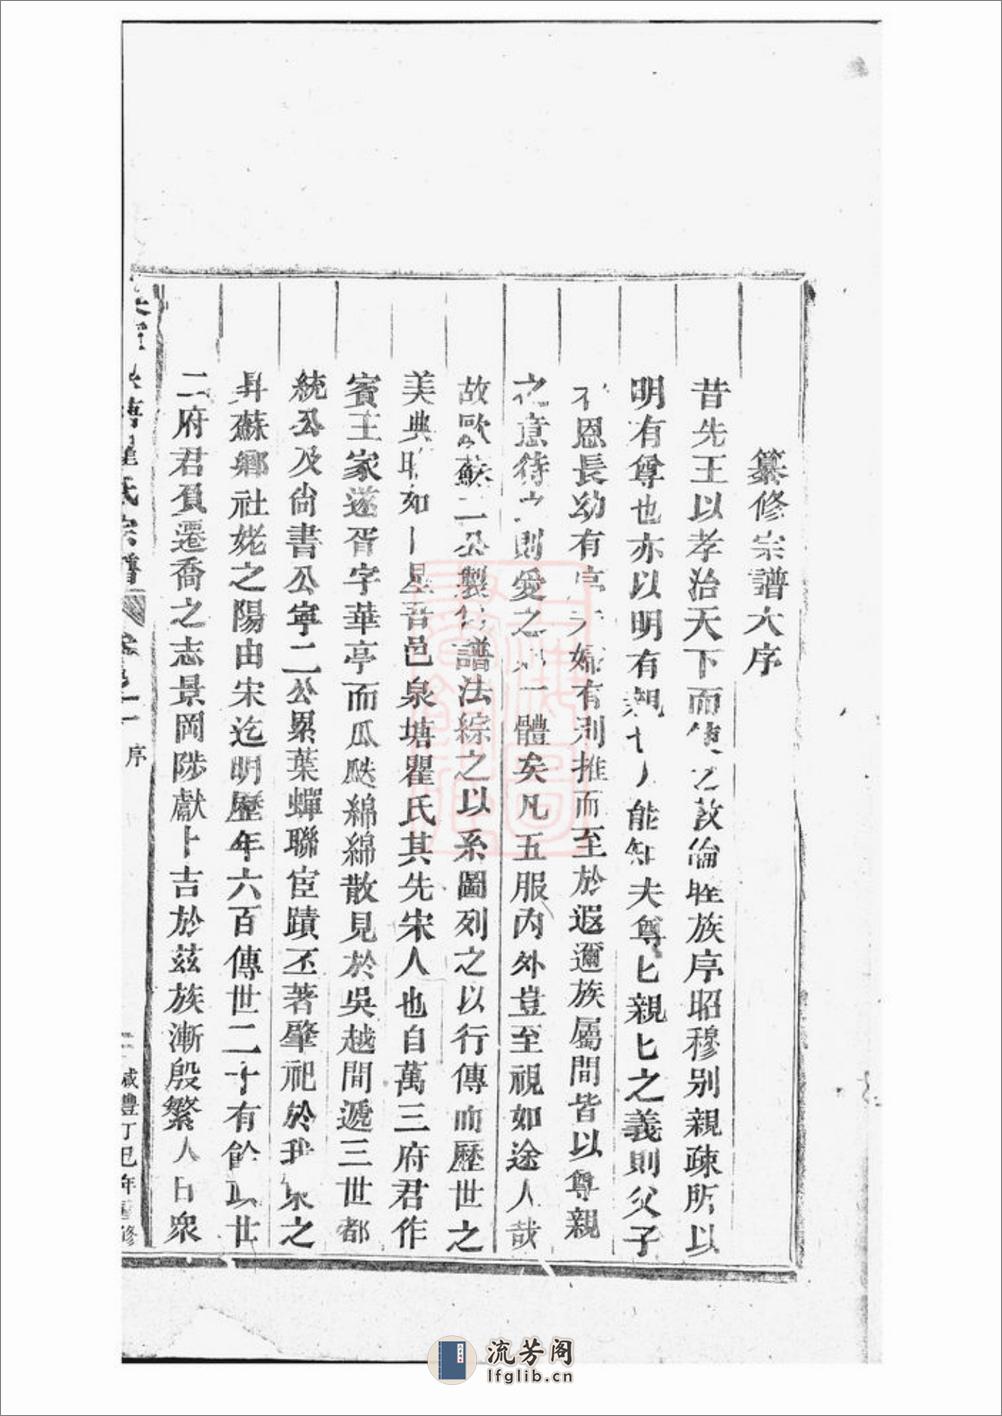 纂修宗譜大序
昔先王以孝治天下而使之敦倫睦族序昭穆别親疎所以
明有尊也亦以明有親也人能知夫尊匕親匕之義則父子
有恩長幼有序夫婦有别推而至於遐邇族屬間皆以尊親
之意待之則愛之如一體矣凡五服内外豈至視如途人哉
故歐蘇二公製為譜法綜之以系圖列之以行傳而歷世之
美典昭如日星吾邑泉塘瞿氏其先宋人也自萬三府君作
賓王家遂胥宇華亭而瓜瓞綿綿散見於吳越間遞三世都
統公及尚書公寧二公累葉蟬聯宦蹟丕著肇祀於我泉之
昇蘇鄉社姥之陽由宋迄明歷年六百傳世二十有餘其廿
二府君負遷喬之志景岡陟巘卜吉於茲族漸殷繁人日衆
塘瞿氏宗譜 卷之一 序 一 咸豐丁巳年重修
流芳阁
lfglib.cn